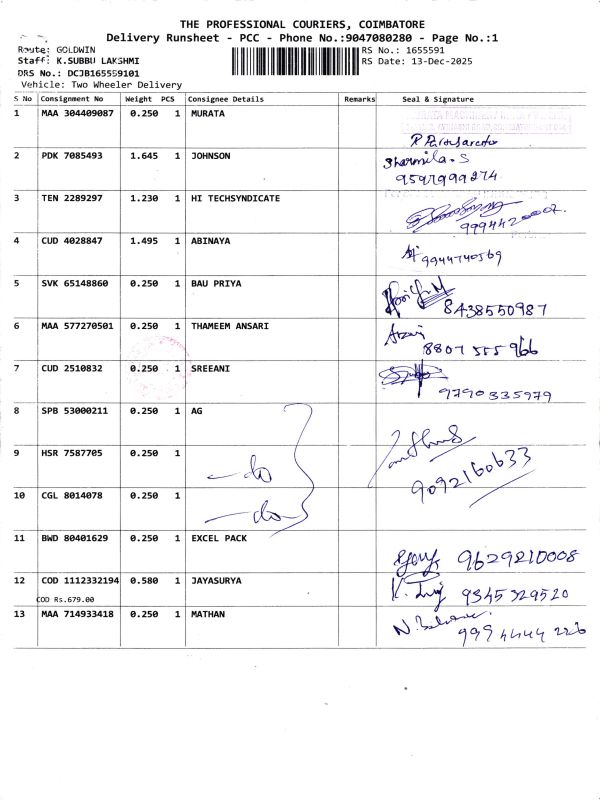 THE PROFESSIONAL COURIERS, COIMBATORE
Delivery Runsheet - PCC - Phone No.:9047080280 - Page No.:1
Route: GOLDWIN
RS No.: 1655591
Staff: K.SUBBU LAKSHMI
RS Date: 13-Dec-2025
DRS No.: DCJB165559101
Vehicle: Two Wheeler Delivery
S No Consignment No Weight PCS Consignee Details Remarks Seal & Signature
1 MAA 304409087 0.250 1 MURATA
2 PDK 7085493 1.645 1 JOHNSON Sharmila.S
9597999274
3 TEN 2289297 1.230 1 HI TECHSYNDICATE
4 CUD 4028847 1.495 1 ABINAYA 9944740569
5 SVK 65148860 0.250 1 BAU PRIYA
8438550987
6 MAA 577270501 0.250 1 THAMEEM ANSARI
8807 555 966
7 CUD 2510832 0.250 1 SREEANI
9790335979
8 SPB 53000211 0.250 1 AG
9 HSR 7587705 0.250 1 -do
9092160633
10 CGL 8014078 0.250 1
-do
11 BWD 80401629 0.250 1 EXCEL PACK
9629210008
12 COD 1112332194 0.580 1 JAYASURYA 9345329520
COD Rs.679.00
13 MAA 714933418 0.250 1 MATHAN
999 4444 226